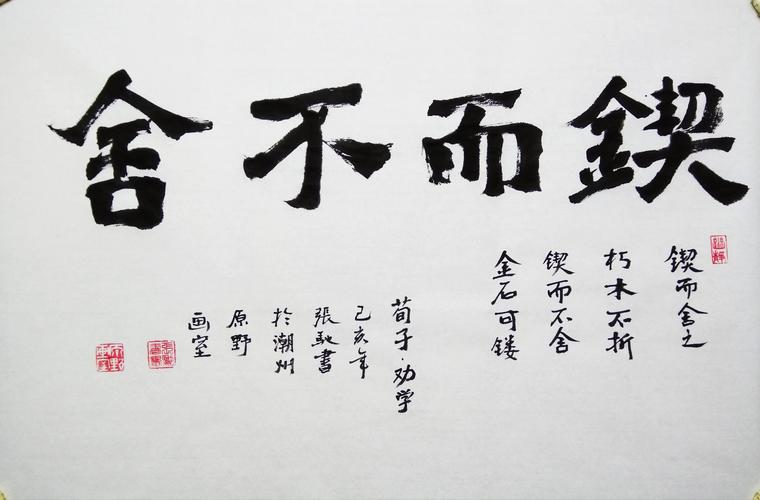 鍥而不舍
鍥而舍之
朽木不折
鍥而不舍
金石可镂
荀子·劝学
己亥年
張馳書
於潮州
原野
画室